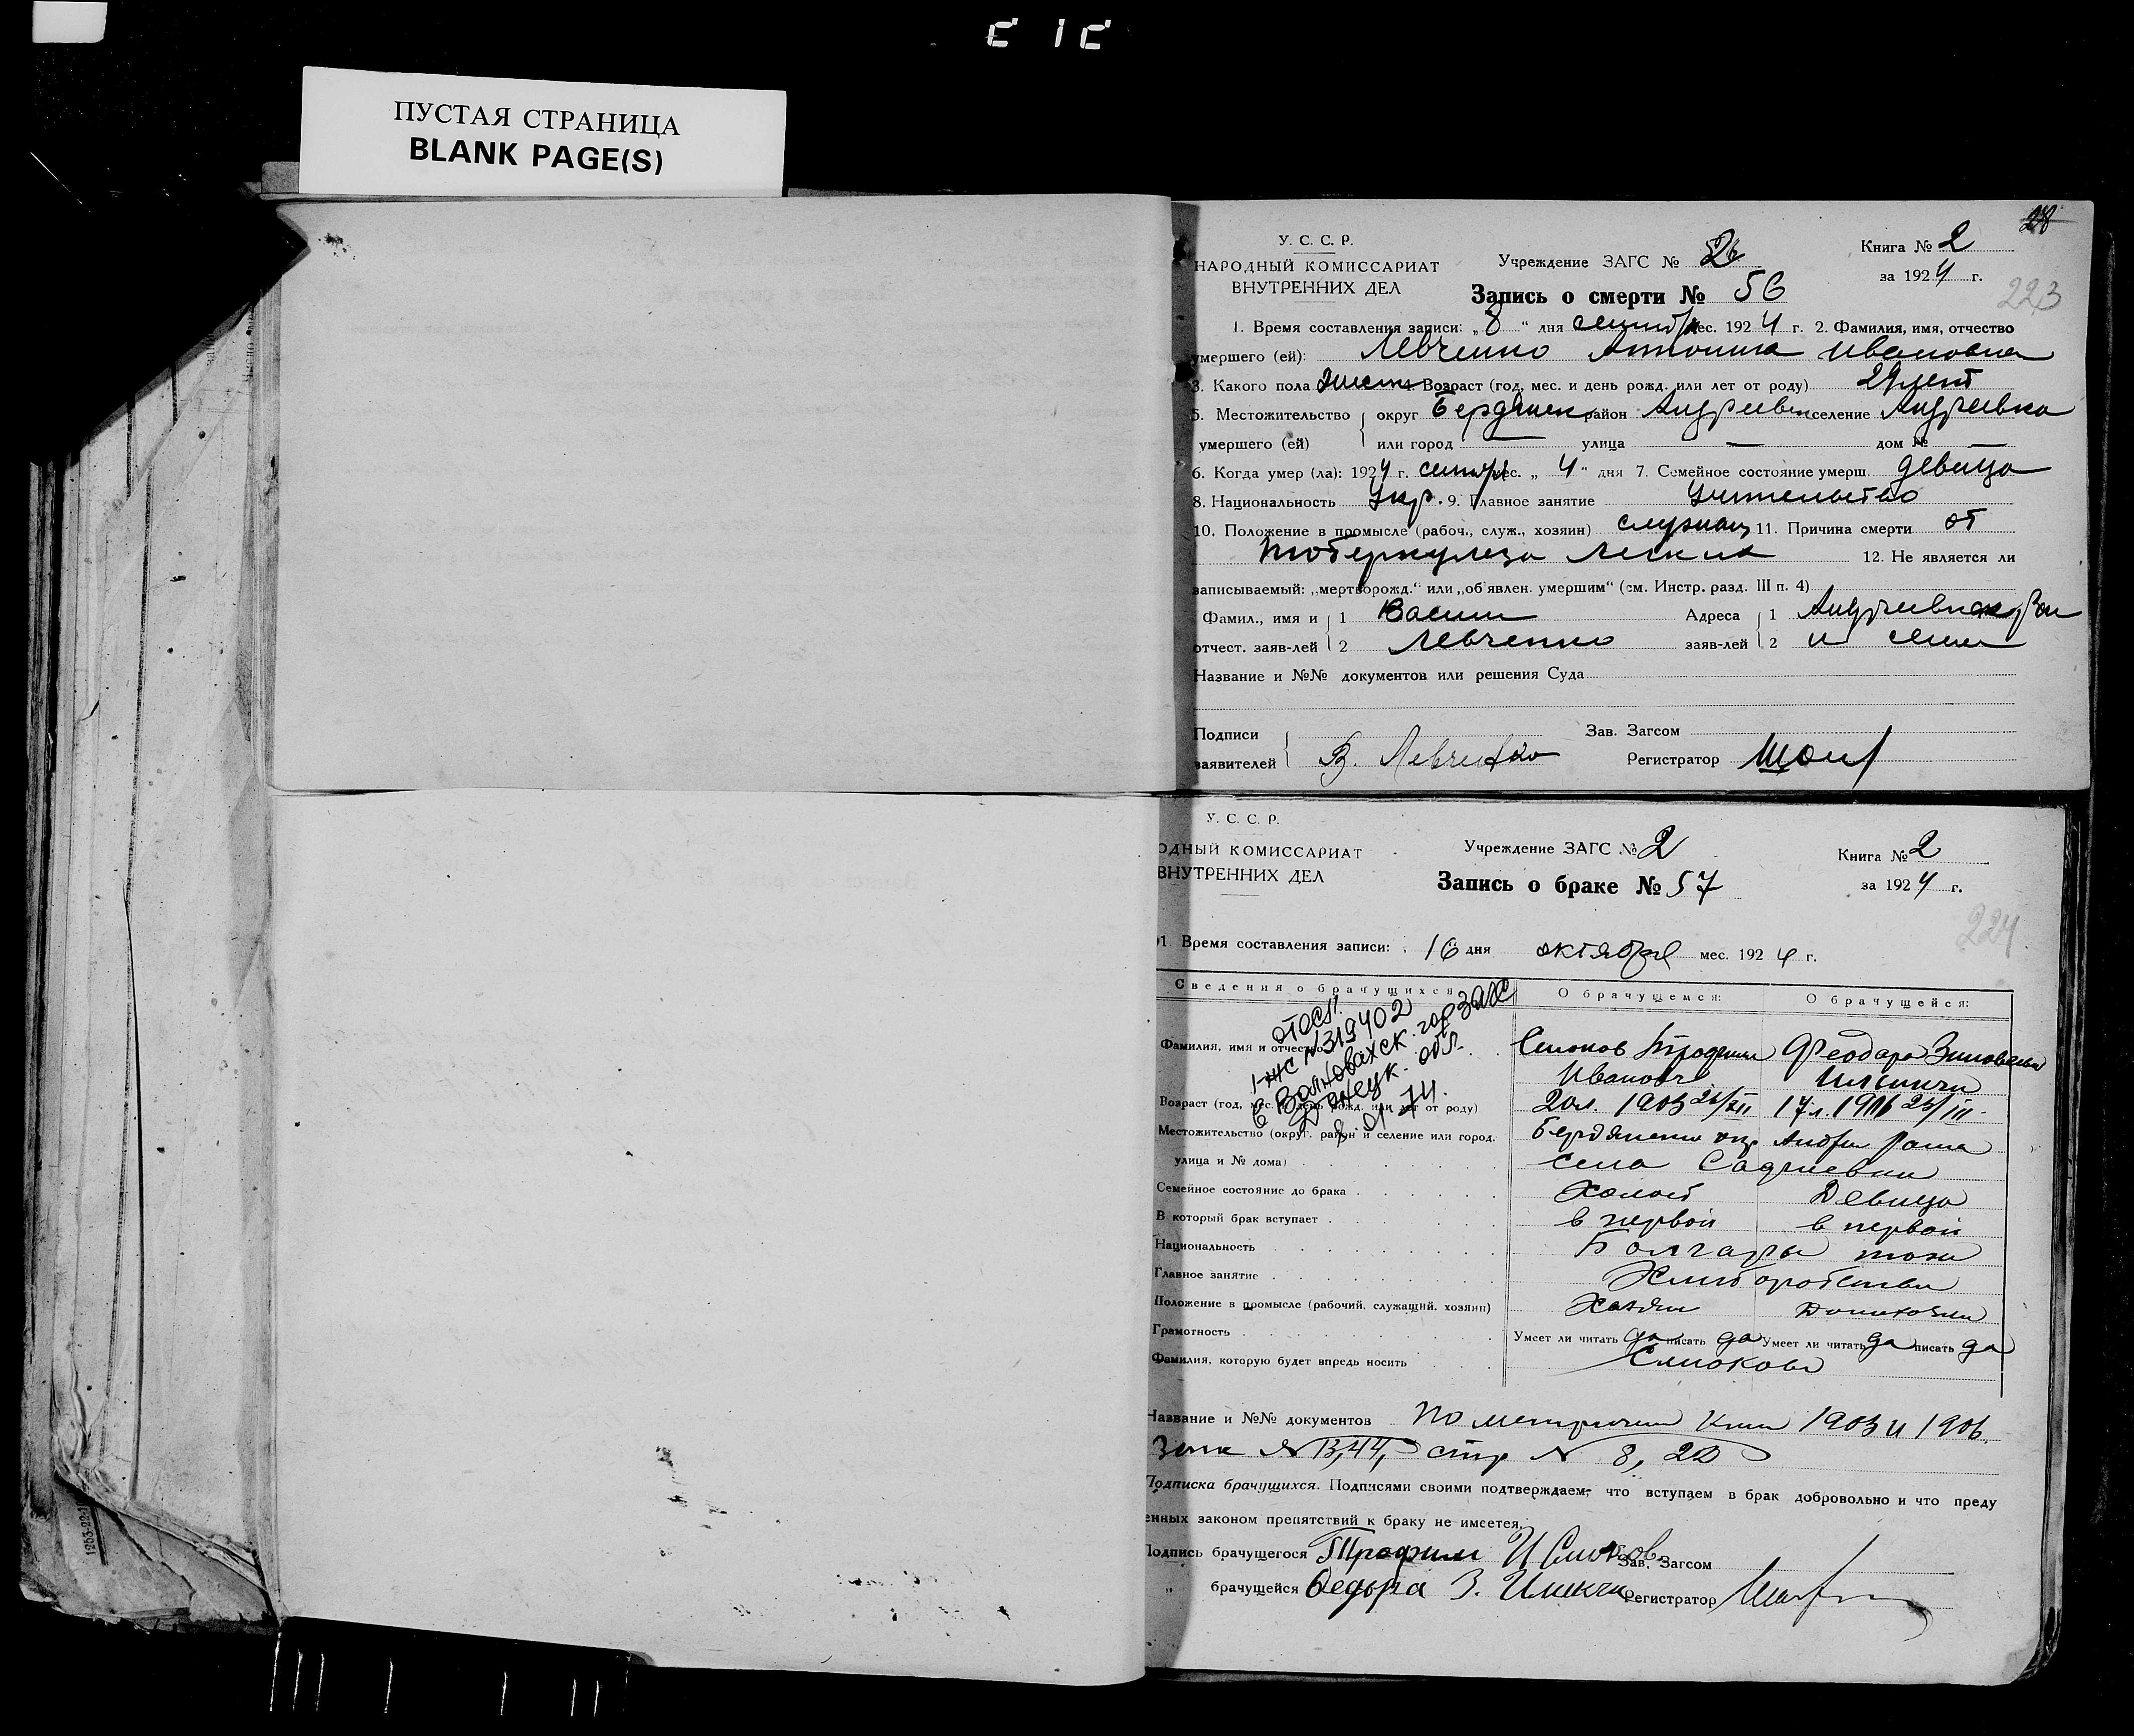 ПУСТАЯ СТРАНИЦА
BLANK PAGE(S)
28
У. С. С. Р.
НАРОДНЫЙ КОМИССАРИАТ
ВНУТРЕННИХ ДЕЛ
Учреждение ЗАГС №
Книга № 2
за 1924 г.
223
Запись о смерти № 56
1. Время составления записи: „ 8 “ дня сентября мес. 1924 г. 2. Фамилия, имя, отчество
умершего (ей): Левченко Антонина Ивановна
3. Какого пола женск Возраст (год, мес. и день рожд. или лет от роду) 29 лет
5. Местожительство округ Бердянск район Андреевск селение Андреевка
умершего (ей) или город — улица — дом № —
6. Когда умер (ла): 1924 г. сентбр мес. „ 4 “ дня 7. Семейное состояние умерш. девица
8. Национальность Укр. 9. Главное занятие Учительство
10. Положение в промысле (рабоч., служ., хозяин) служащ 11. Причина смерти от
туберкулеза легких 12. Не является ли
записываемый: „мертворожд.“ или „об'явлен. умершим“ (см. Инстр. разд. III п. 4)
Фамил., имя и 1 Васили Адреса 1
отчест. заяв-лей 2 Левченко заяв-лей 2 и села
Название и №№ документов или решения Суда
Подписи
заявителей В. Левченко
Зав. Загсом
Регистратор
У. С. С. Р.
ОДНЫЙ КОМИССАРИАТ
ВНУТРЕННИХ ДЕЛ
Учреждение ЗАГС № 2
Книга № 2
за 1924 г.
Запись о браке № 57
224
1. Время составления записи: 16 дня октября мес. 1924 г.
Сведения о брачущихся
О брачущемся:
О брачущейся:
1-ЖС N319402
в Волновахск. горЗАГС
Донецк. обл.
74.
Фамилия, имя и отчество Трофим Феодора Зиновьевн
Иванович
Возраст (год, мес. и день рожд. или лет от роду) 20 л. 1903 25/XII 17 л. 1906 25/III
Местожительство (округ, район и селение или город, Бердянского окр Андреев Района
улица и № дома) села
Семейное состояние до брака Холост Девица
В который брак вступает в первой в первой
Национальность Болгары тоже
Главное занятие Хлиборобство
Положение в промысле (рабочий, служащий, хозяин) Хозяин Домохозяй
Грамотность Умеет ли читать да писать да Умеет ли читать да писать да
Фамилия, которую будет впредь носить
Название и №№ документов по метрической книг 1903 и 1906.
N 13,44, стр N 8, 20
Подписка брачущихся. Подписями своими подтверждаем, что вступаем в брак добровольно и что преду
енных законом препятствий к браку не имеется.
Подпись брачущегося Трофим И
Зав. Загсом
„ брачущейся Федора З.
Регистратор
1253-22-1